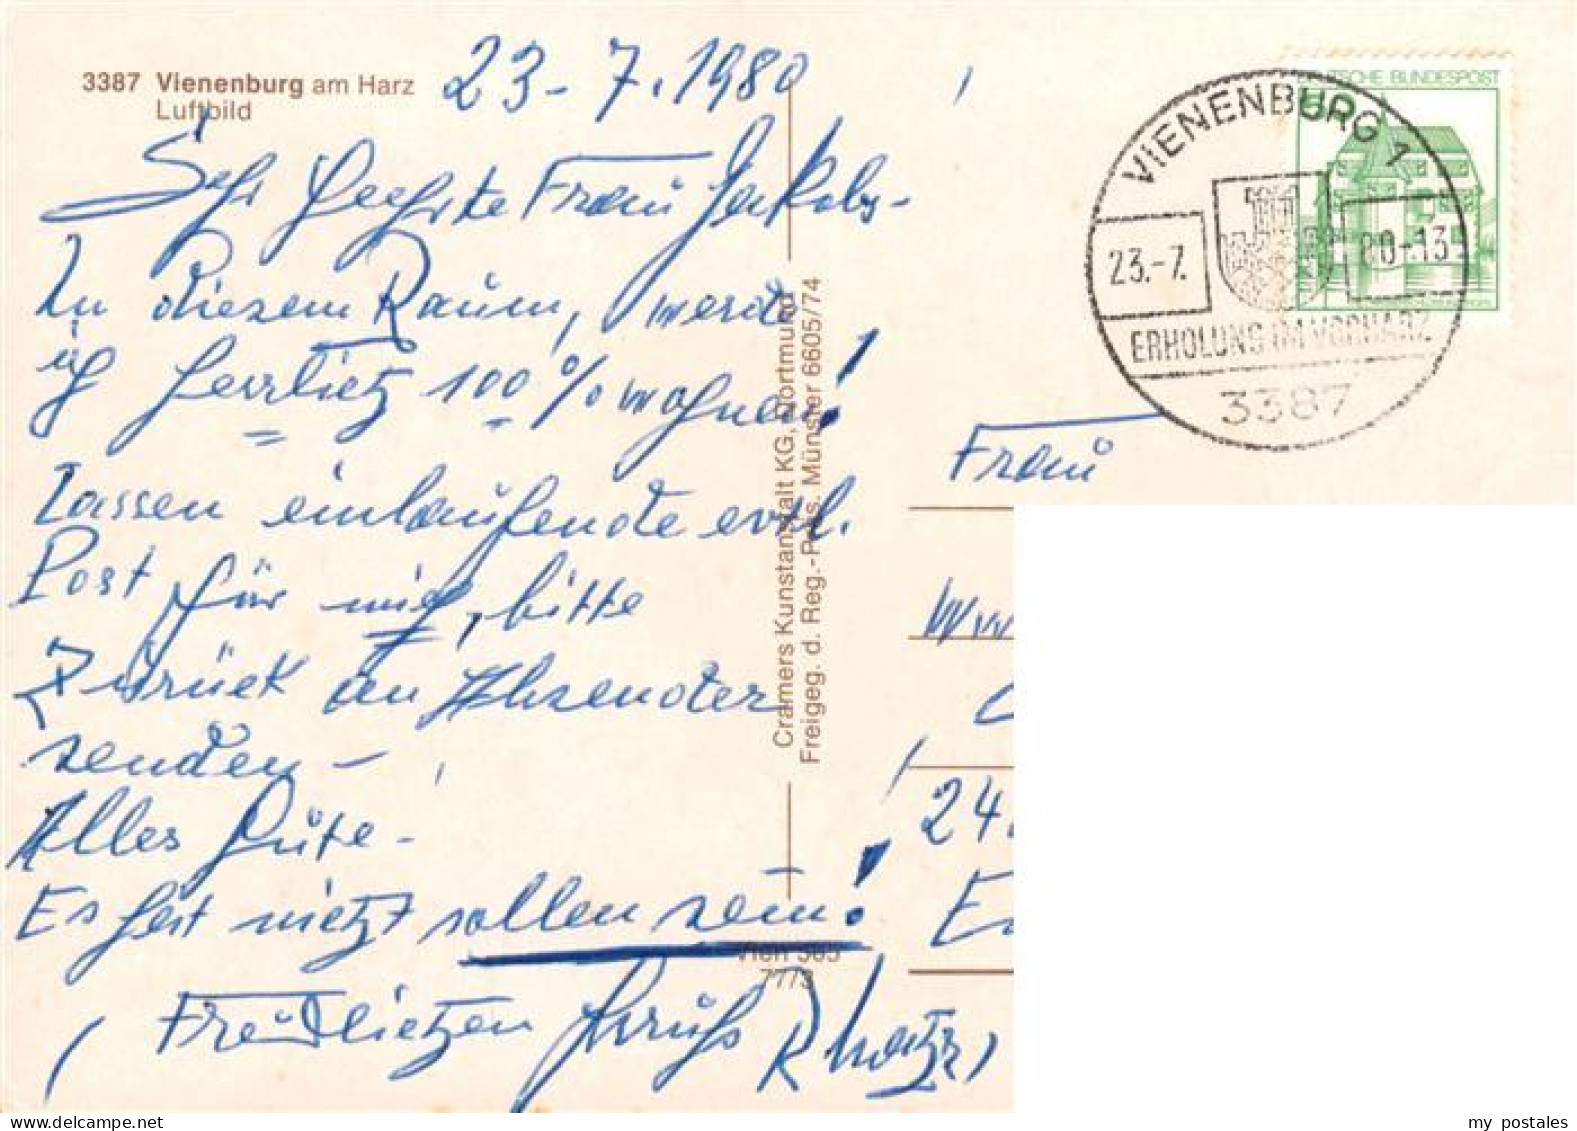 3387 Vienenburg am Harz
Luftbild
23-7.1980
Sehr geehrte Frau Jakobs-
In diesem Raum, werde
ich herrlich 100% wohnen!
Lassen einlaufende evtl.
Post für mich, bitte
zurück an Absender
senden-
Alles Gute-
Es hat nicht sollen sein!
Freundlichen Gruß R
Cramers Kunstanstalt KG, Dortmund
Freigeg. d. Reg.-Präs. Münster 6605/74
Vien 365
77/3
DEUTSCHE BUNDESPOST
VIENENBURG 1
23.-7.
80-13
ERHOLUNG IM VORHARZ
3387
Frau
24.
my postales